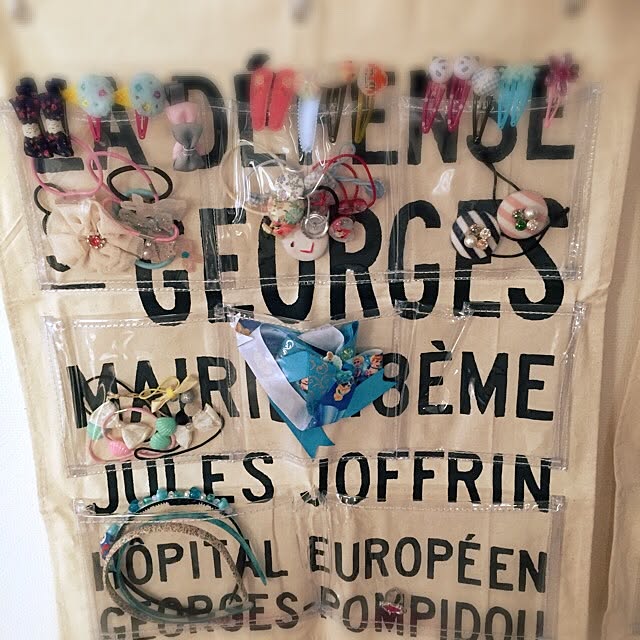 LA DÉFENSE
- GEORGES
MAIRIE 18ÈME
JULES JOFFRIN
HÔPITAL EUROPÉEN
GEORGES-POMPIDOU